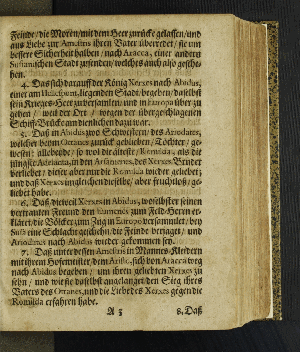 Feinde / die Moren / mit dem Heer zurücke gelassen / und
aus Liebe zur Amestris ihren Vater überredet / sie um
besserer Sicherheit halben / nach Aracca, einer andern
Susianischen Stadt zusenden / welches auch also gesche-
hen.
4. Das sich darauf der König Xerxes nach Abidus,
einer am Helespont liegenden Stadt / begeben / daselbst
sein Krieges-Heer zuversamlen / und in Europa über zu
gehen / weil der Ort / wegen der übergeschlagenen
Schiff-Brücke am dienlichsten dazu war.
5. Daß in Abidus zwo Schwestern / des Ariodates,
welcher beym Ottanes zurück geblieben / Töchter / ge-
wesen: allebeyde / so wol die älteste / Romilda, als die
jüngste Adelanta, in den Arsamenes, des Xerxes Bruder
verliebet; dieser aber nur die Romilda wieder geliebet;
und daß Xerxes ungleichen dieselbe / aber fruchtlos / ge-
liebet habe.
6. Daß, dieweil Xerxes in Abidus, woselbst er seinen
vertrauten Freund den Eumenes zum Feld-Herrn er-
kläret / die Völcker zum Zug in Europa versammlet / bey
Susa eine Schlacht geschehn / die Feinde verjaget / und
Ariodates nach Abidus wieder gekommen sey.
7. Daß unter dessen Amestris in Mannes-Kleidern
mit ihrem Hofemeister / dem Aristo, sich von Aracca weg
nach Abidus begeben / um ihren geliebten Xerxes zu
sehn / und wie sie daselbst angelanget / den Sieg ihres
Vaters des Ottanes, und die Liebe des Xerxes gegen die
Romilda erfahren habe.
A 3 8. Daß